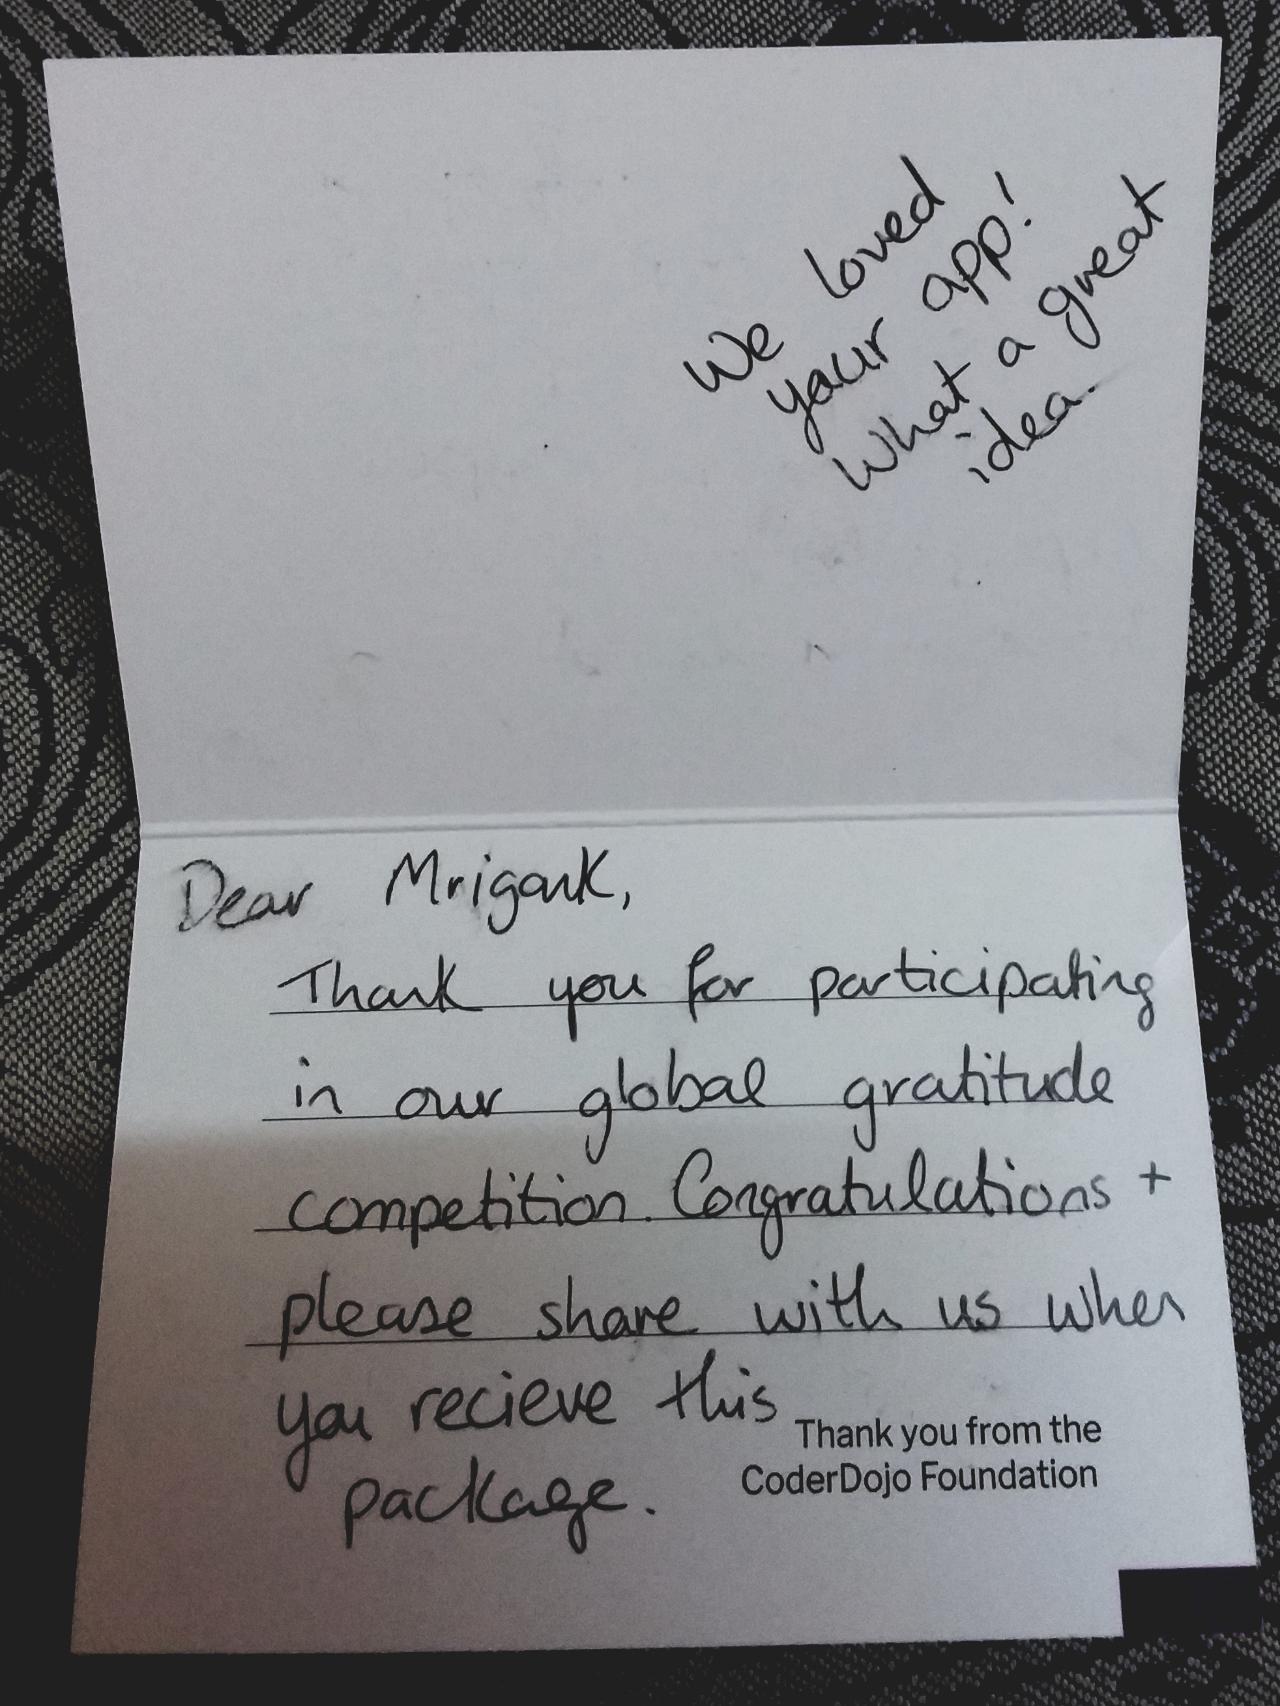 We loved
your app!
What a great
idea.
Dear Mrigank,
Thank you for participating
in our global gratitude
competition. Congratulations +
please share with us when
you recieve this
package.
Thank you from the
CoderDojo Foundation